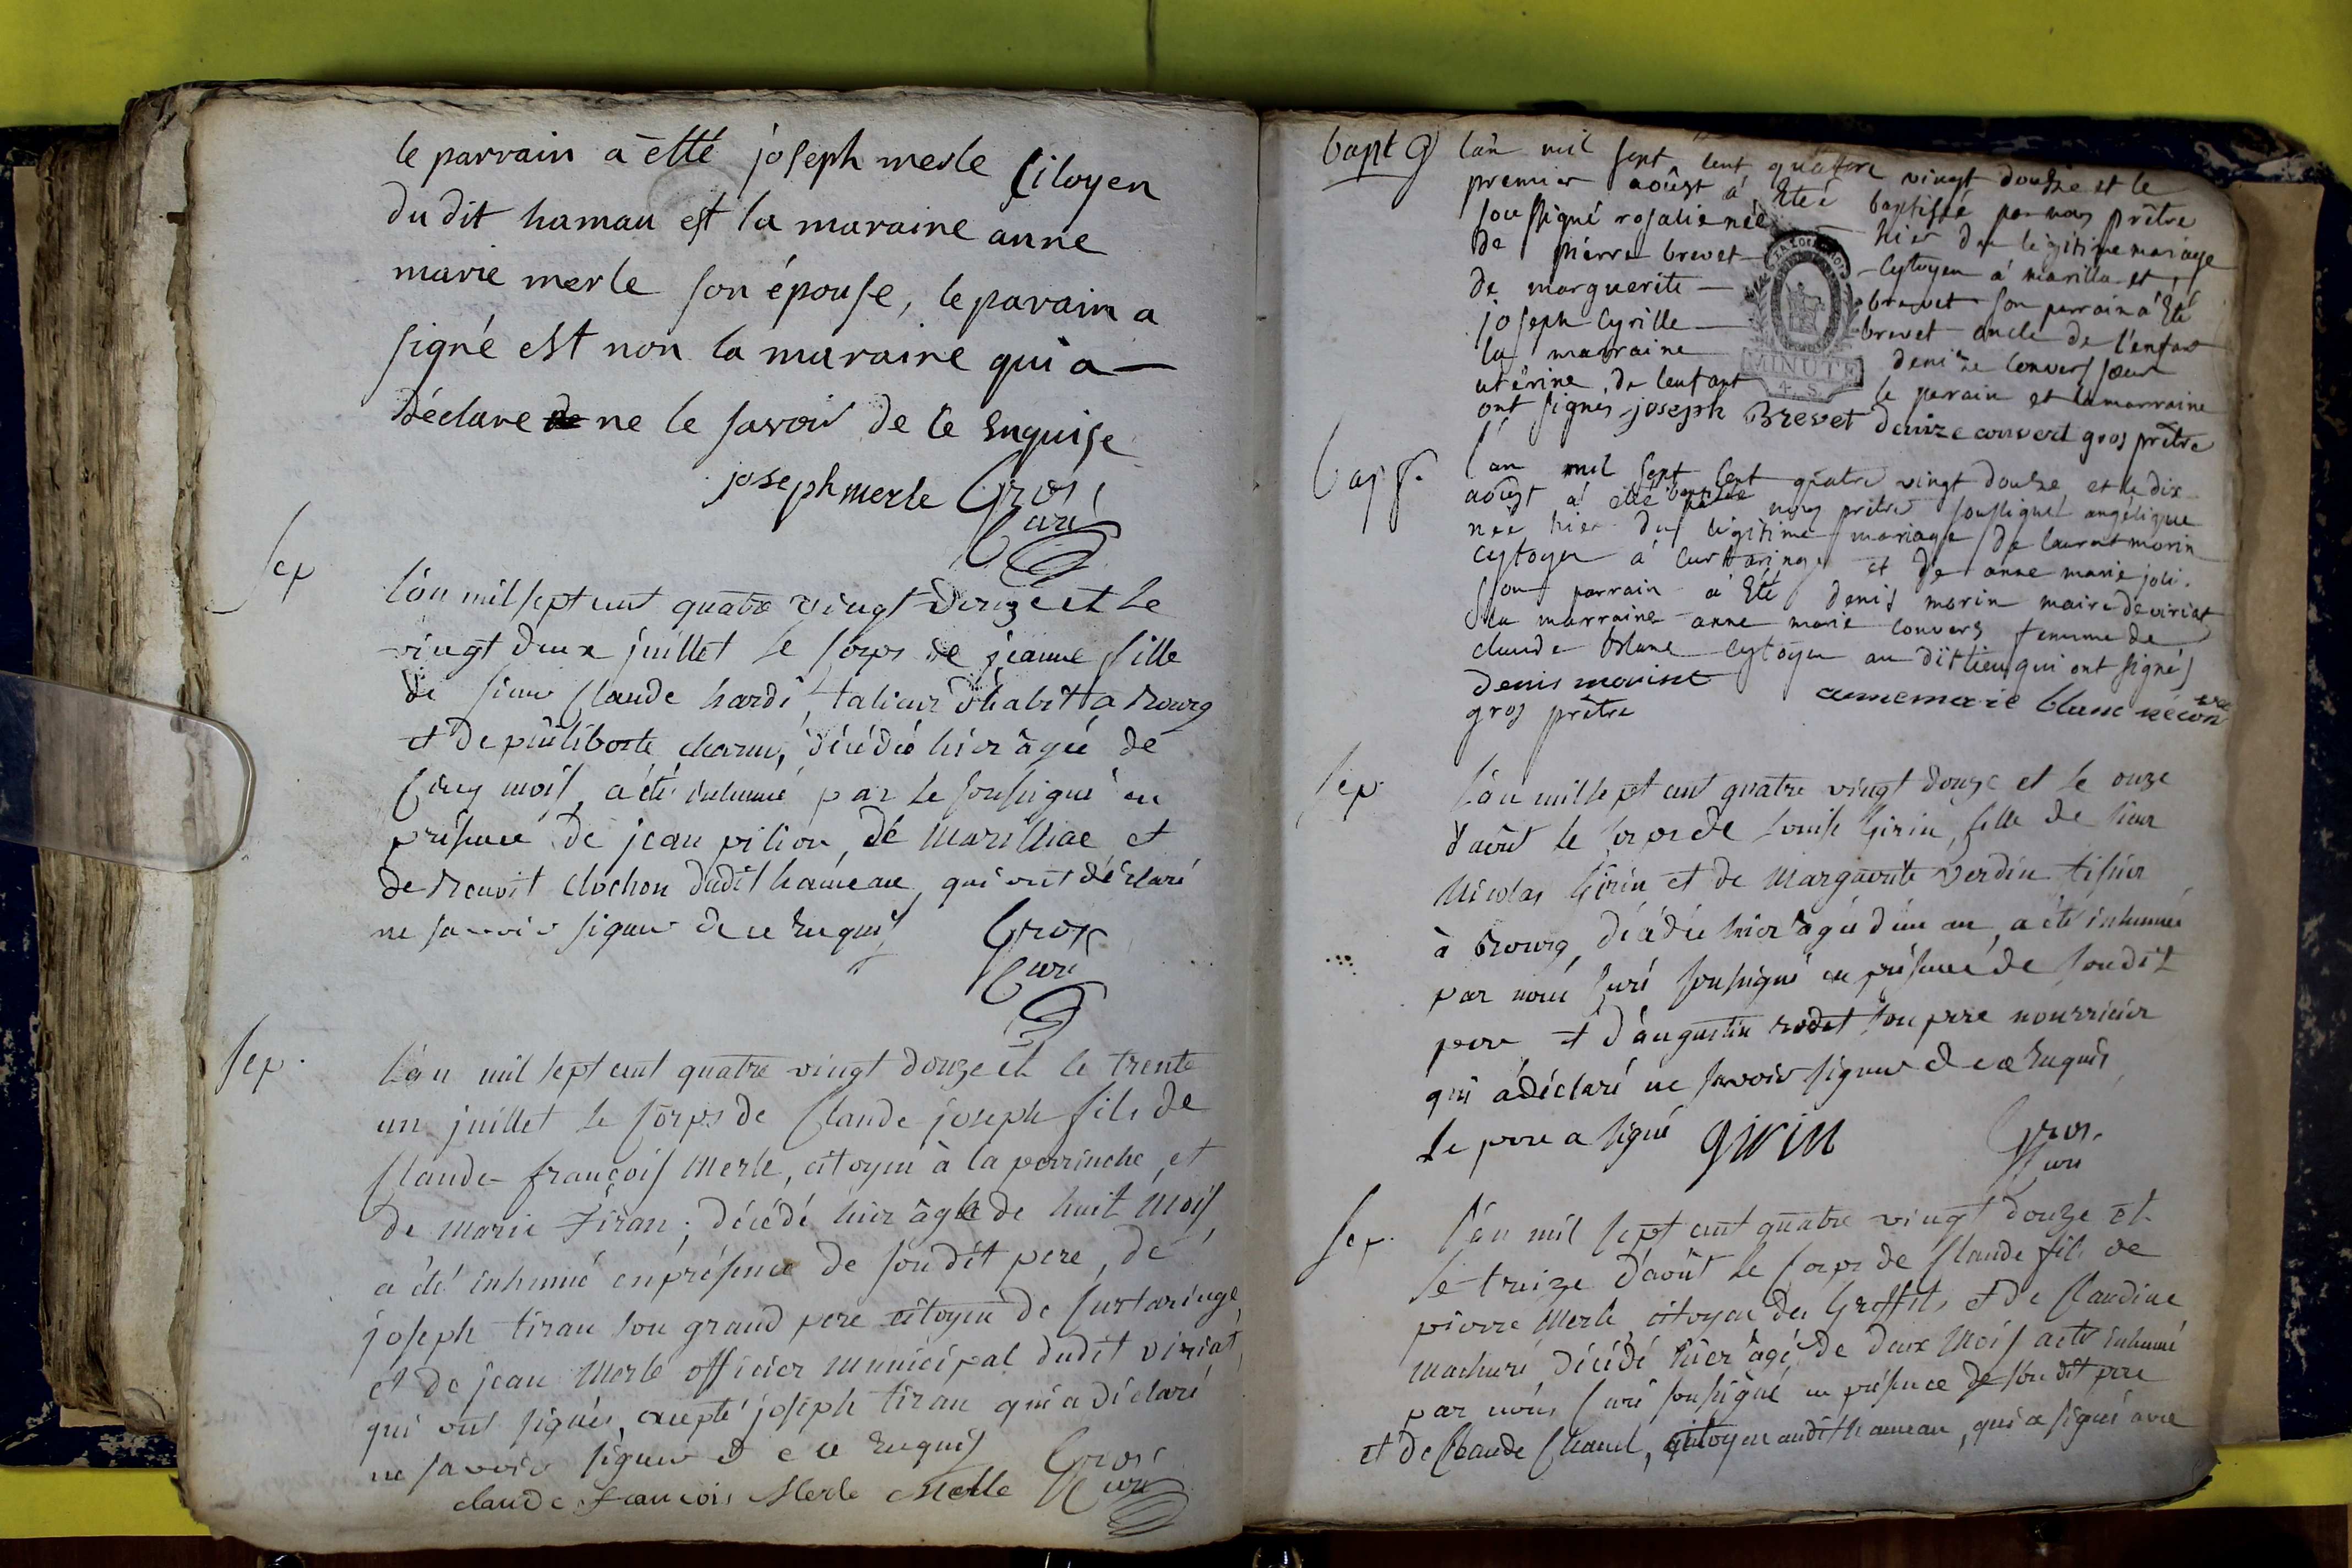 le parrain à étté joseph merle Citoyen
du dit hamau est la maraine anne
marie merle son épouse, le parain a
signé est non la maraine qui a
déclare ne le savoir de ce Enquise
joseph merle Gros
Curé
Sep
L'an mil sept cent quatre vingt douze et le
vingt deux juillet le corps de jeanne fille
de sieur Claude hardi, talieur d'habit a Bourg
et de décédé hier âgée de
Cinq mois, a été inhumé par le soussigné en
présence de jean pition de Marilliac et
de Benoit clochon dudit hameau, qui ont déclaré
ne savoir signer de ce Enquis
Gros
Curé
Sep.
L'an mil sept cent quatre vingt douze et le trente
un juillet le Corps de Claude joseph fils de
Claude françois Merle, citoyen à la perrinche, et
de Marie Tiran, décédé hier âgé de huit Mois
a été inhumé enprésence de son dit pere, de
joseph tiran son grand pere citoyen de Curtaringe
et de jean Merle officier municipal dudit viriat
qui ont signés, excepté joseph tiran qui a déclaré
ne savoir signer de ce Enquis
Gros
claude francois Merle Merle Curé
bapt
l'an mil sept Cent quatre vingt douze et le
premier aoûst à Etéé baptisée par nous prêtre
soussigné rosalie née hier du légitime mariage
de pierre brevet Cytoyen à marilla et
de marguerite brevet son parrain a Eté
joseph Cyrille brevet oncle de l'enfant
la marraine denize Convers sœur
utérine de lenfant le parain et la marraine
ont signés joseph Brevet denize convert gros prêtre
MINUTE
4. S.
bap
l'an mil sept Cent quatre vingt douze et le dix
aoûst a été baptisée par nous prêtre soussigné angélique
née hier du légitime mariage de laurent morin
cytoyen à Curtaringe et de anne marie joli.
son parrain à Eté denis morin maire de viriat
la marraine anne marie Convers femme de
claude blanc Cytoyen au dit lieu qui ont signés
denis morin
annemarie blanc née con
gros prêtre
Sep.
L'an mil sept cent quatre vingt douze et le onze
d'août le corps de Louise Girin, fille de sieur
Nicolas Girin et de Marguerite Verdin tisseur
à Bourg, décédée hier âgée d'un an, a été inhumée
par nous Curé soussigné en présence de son dit
pere et d'augustin rodet son pere nourricier
qui a déclaré ne savoir signer de ce Enquis
Le pere a signé girin
Gros.
Curé
Sep.
L'an mil sept cent quatre vingt douze et
le treize d'août le Corps de Claude fils de
pierre Merle, citoyen des Greffets et de Claudine
Machuré, décédé hier âgé de deux Mois a été inhumé
par nous Curé soussigné en présence de son dit pere
et de Claude Chanel, citoyen audit hameau, qui a signé avec